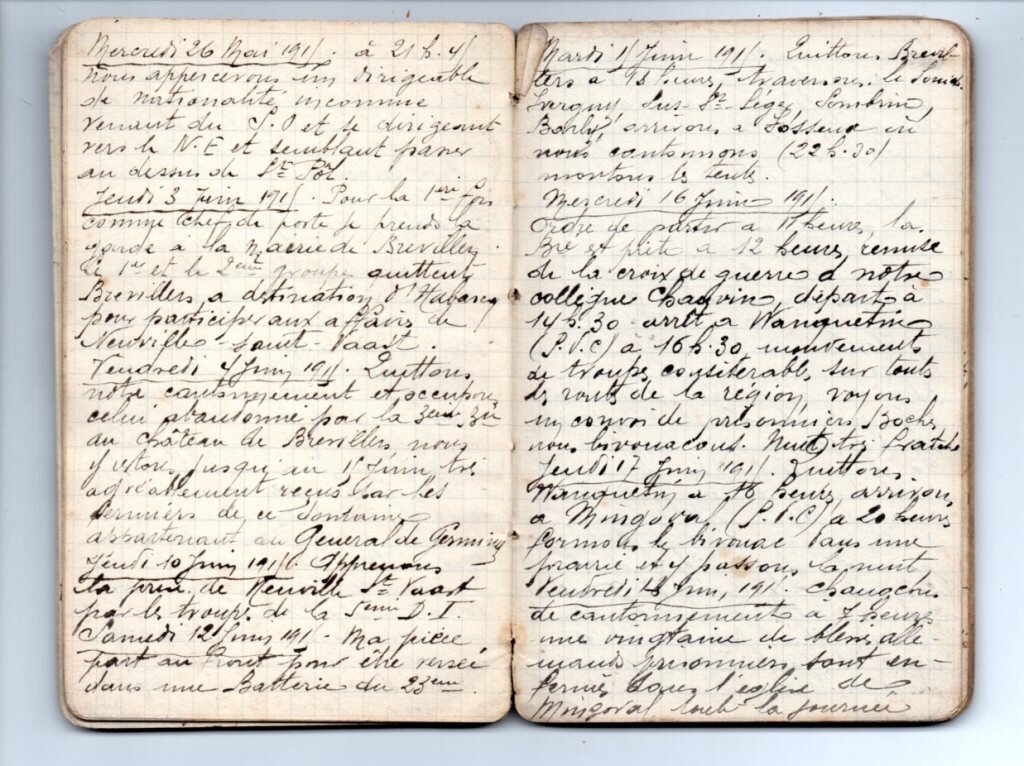 Mercredi 26 Mai 1915. à 21 h. 45
nous appercevons un dirigeable
de nationalité inconnue
venant du S.O et se dirigeant
vers le N.E et semblant passer
au dessus de St Pol.
Jeudi 3 Juin 1915. Pour la 1ère fois
comme chef de poste je prends la
garde à la Mairie de Brevillers
Le 1er et le 2ème groupe quittent
Brevillers a destination d'Habarcq
pour participer aux affaires de
Neuville-Saint-Vaast.
Vendredi 4 Juin 1915. Quittons
notre cantonnement et occupons
celui abandonné par la 3eme Bie
au château de Brevillers nous
y restons jusqu'au 15 Juin, très
agréablement reçus par les
fermiers de ce domaine
appartenant au General de Germiny
Jeudi 10 Juin 1915. Apprenons
la prise de Neuville St Vaast
par les troupes de la 5ème D.I.
Samedi 12 Juin 1915. Ma pièce
part au Front pour être versée
dans une Batterie du 23eme.
Mardi 15 Juin 1915. Quittons Brevil-
lers a 18 heures, traversons: le Souich
Ivergny, Sus-St-Léger, Sombrin,
Barly, arrivons a Fosseux où
nous cantonnons (22 h. 30)
montons les tentes.
Mercredi 16 Juin 1915.
Ordre de partir a 11 heures, la
Bie est prête a 12 heures, remise
de la croix de guerre a notre
collègue Chauvin, départ à
14 h. 30 arrêt a Wanquetin
(P.D.C) à 16 h. 30 mouvements
de troupes considérables sur toutes
les routes de la région, voyons
un convoi de prisonniers Boches
nous bivouacons. Nuit très fraîche
Jeudi 17 Juin 1915. Quittons
Wanquetin a 16 heures, arrivons
a Mingoval (P.D.C) a 20 heures
formons le bivouac dans une
prairie et y passons la nuit,
Vendredi 18 Juin, 191. changeons
de cantonnement a 7 heures
une vingtaine de blessés alle-
mands prisonniers sont en-
fermés dans l'église de
Mingoval toute la journée